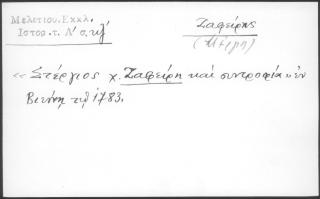 Μελετίου. Εκκλ.
Ιστορ. τ. Λ' σ. κζ'
Ζαφείρης
« Στέργιος χ. Ζαφείρη καὶ συντροφία ἐν
Βιέννῃ τῷ 1783.